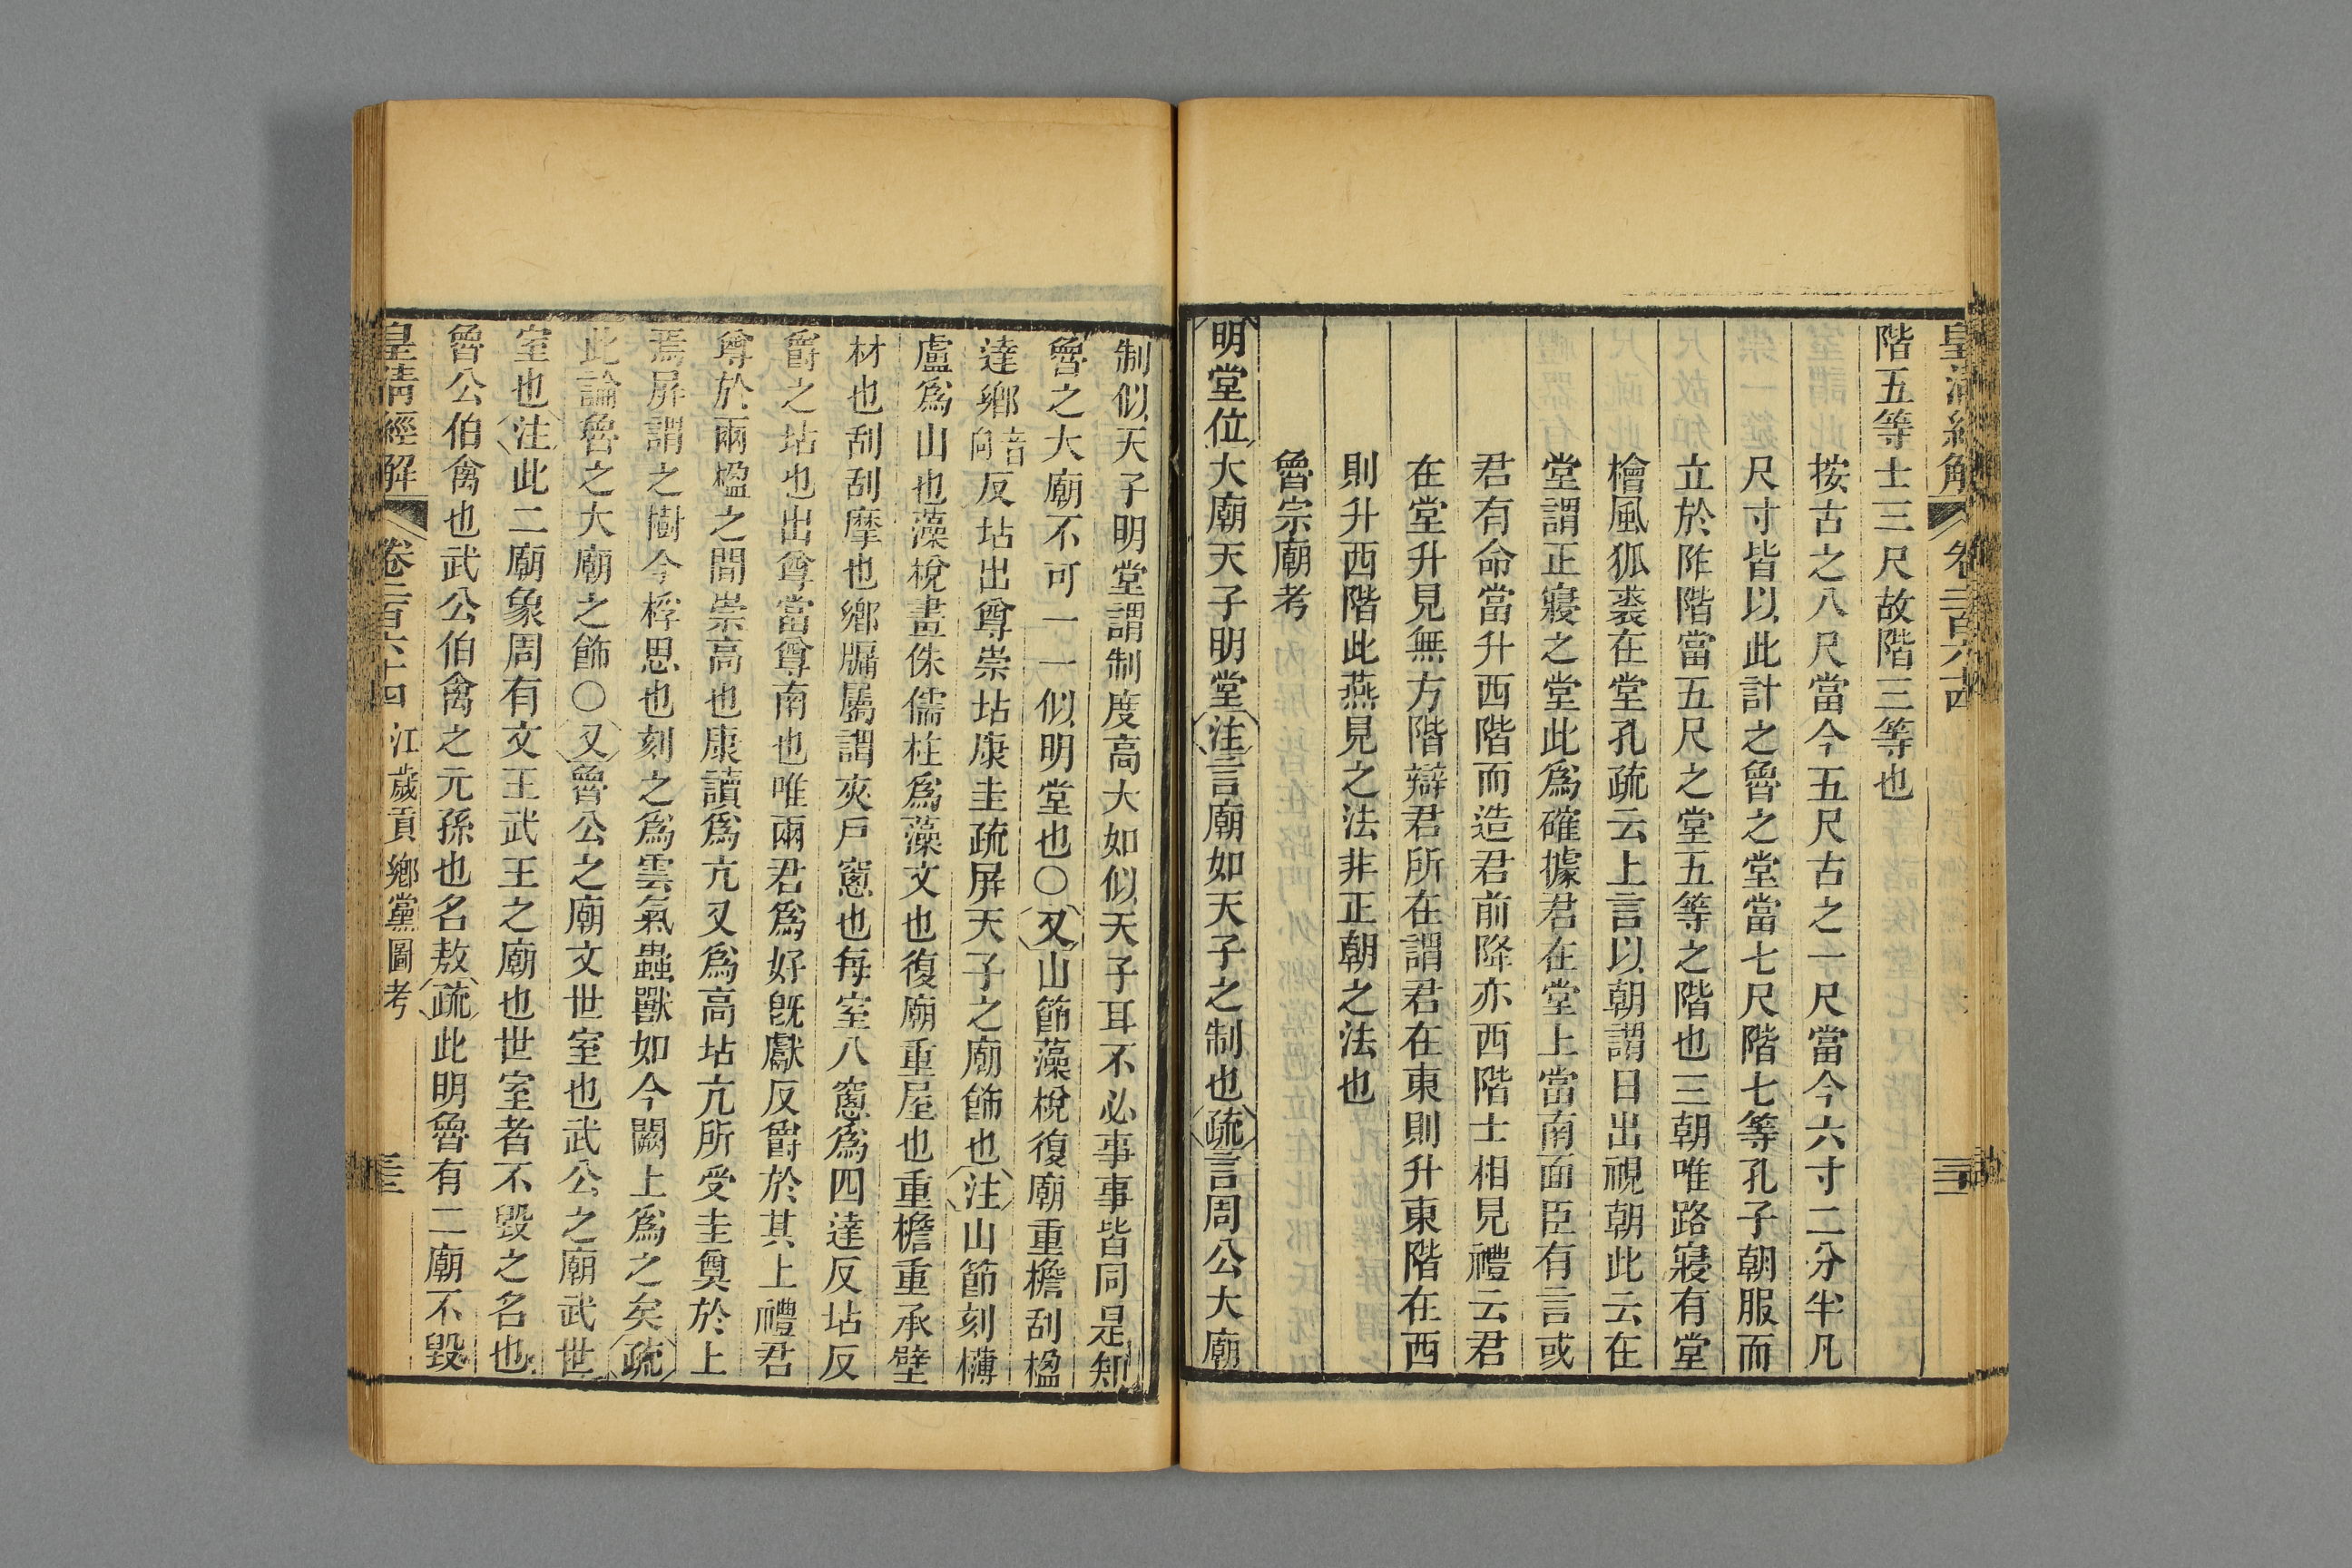 皇清經解 卷二百六十四
階五等士三尺故階三等也
按古之八尺當今五尺古之一尺當今六寸二分半凡
尺寸皆以此計之魯之堂當七尺階七等孔子朝服而
立於阼階當五尺之堂五等之階也三朝唯路寢有堂
檜風狐裘在堂孔疏云上言以朝謂日出視朝此云在
堂謂正寢之堂此爲確據君在堂上當南面臣有言或
君有命當升西階而造君前降亦西階士相見禮云君
在堂升見無方階辯君所在謂君在東則升東階在西
則升西階此燕見之法非正朝之法也
魯宗廟考
明堂位大廟天子明堂注言廟如天子之制也疏言周公大廟
制似天子明堂謂制度高大如似天子耳不必事事皆同是知
魯之大廟不可一一似明堂也○又山節藻梲復廟重檐刮楹
達鄉音向反坫出尊崇坫康圭疏屏天子之廟飾也注山節刻欂
盧爲山也藻梲畫侏儒柱爲藻文也復廟重屋也重檐重承壁
材也刮刮摩也鄉牖屬謂夾戶窻也每室八窻爲四達反坫反
爵之坫也出尊當尊南也唯兩君爲好旣獻反爵於其上禮君
尊於兩楹之間崇高也康讀爲亢又爲高坫亢所受圭奠於上
焉屏謂之樹今桴思也刻之爲雲氣蟲獸如今闕上爲之矣疏
此論魯之大廟之飾○又魯公之廟文世室也武公之廟武世
室也注此二廟象周有文王武王之廟也世室者不毀之名也
魯公伯禽也武公伯禽之元孫也名敖疏此明魯有二廟不毀
皇清經解 卷二百六十四 江歲貢鄉黨圖考